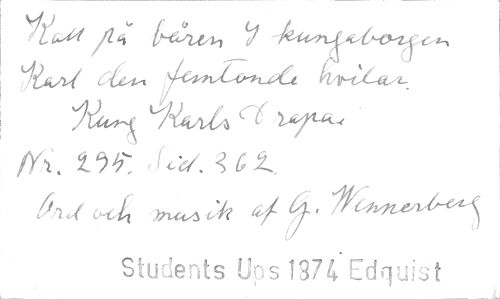 Kall på båren I kungaborgen
Karl den femtonde hvilar.
Kung Karls Drapa.
Nr. 295. Sid. 362.
Ord och musik af G. Wennerberg
Students Ups 1874 Edquist